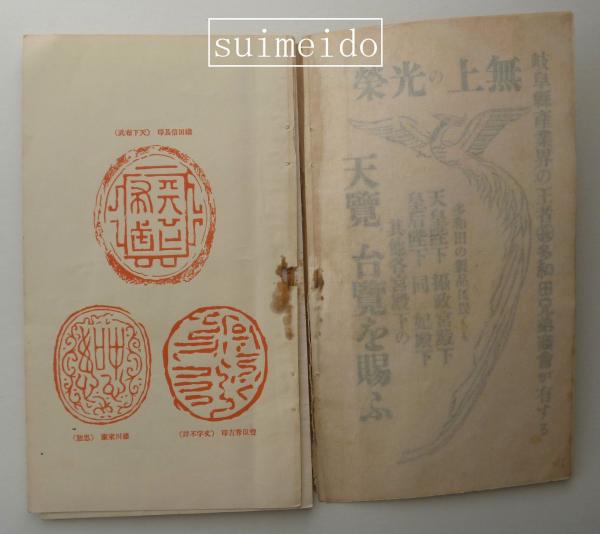 suimeido
岐阜縣產業界の王者多和田兄弟商會が有する
無上の光榮
多和田の製品は畏くも
天皇陛下 攝政宮殿下
皇后陛下 同 妃殿下
其他各宮殿下の
天覽 台覽を賜ふ
織田信長印 (天下布武)
豐臣秀吉印 (文字不詳)
德川家康 (忠恕)